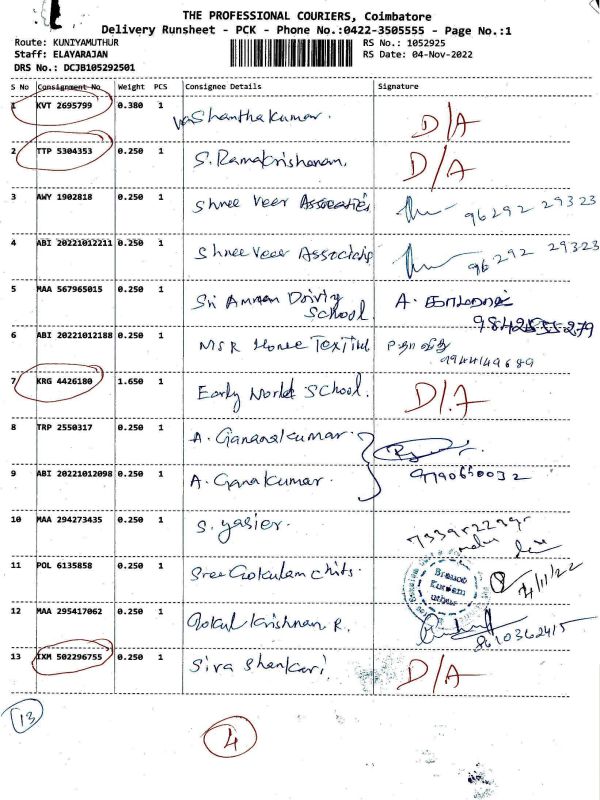 THE PROFESSIONAL COURIERS, Coimbatore
Delivery Runsheet - PCK - Phone No.:0422-3505555 - Page No.:1
Route: KUNIYAMUTHUR RS No.: 1052925
Staff: ELAYARAJAN RS Date: 04-Nov-2022
DRS No.: DCJB105292501
S No Consignment No Weight PCS Consignee Details Signature
1 KVT 2695799 0.380 1 Shanthakumar. D/A
2 TTP 5304353 0.250 1 S. Ramakrishanan. D/A
3 AWY 1902818 0.250 1 Shree Veer Associates 96292 29323
4 ABI 20221012211 0.250 1 Shree Veer Associates 96292 29323
5 MAA 567965015 0.250 1 Sri Amman Driving School A.
6 ABI 20221012188 0.250 1 MSR Home Textiled 9944149689
7 KRG 4426180 1.650 1 Early World School. D/A
8 TRP 2550317 0.250 1 A. Gananakumar.
9 ABI 20221012098 0.250 1 A. Ganakumar. 9790650032
10 MAA 294273435 0.250 1 S. yasier.
11 POL 6135858 0.250 1 Sree Gokulam chits. 4/11/22
12 MAA 295417062 0.250 1 Gokul Krishnan R. 8610362415
13 IXM 502296755 0.250 1 Siva Shankari D/A
13
4